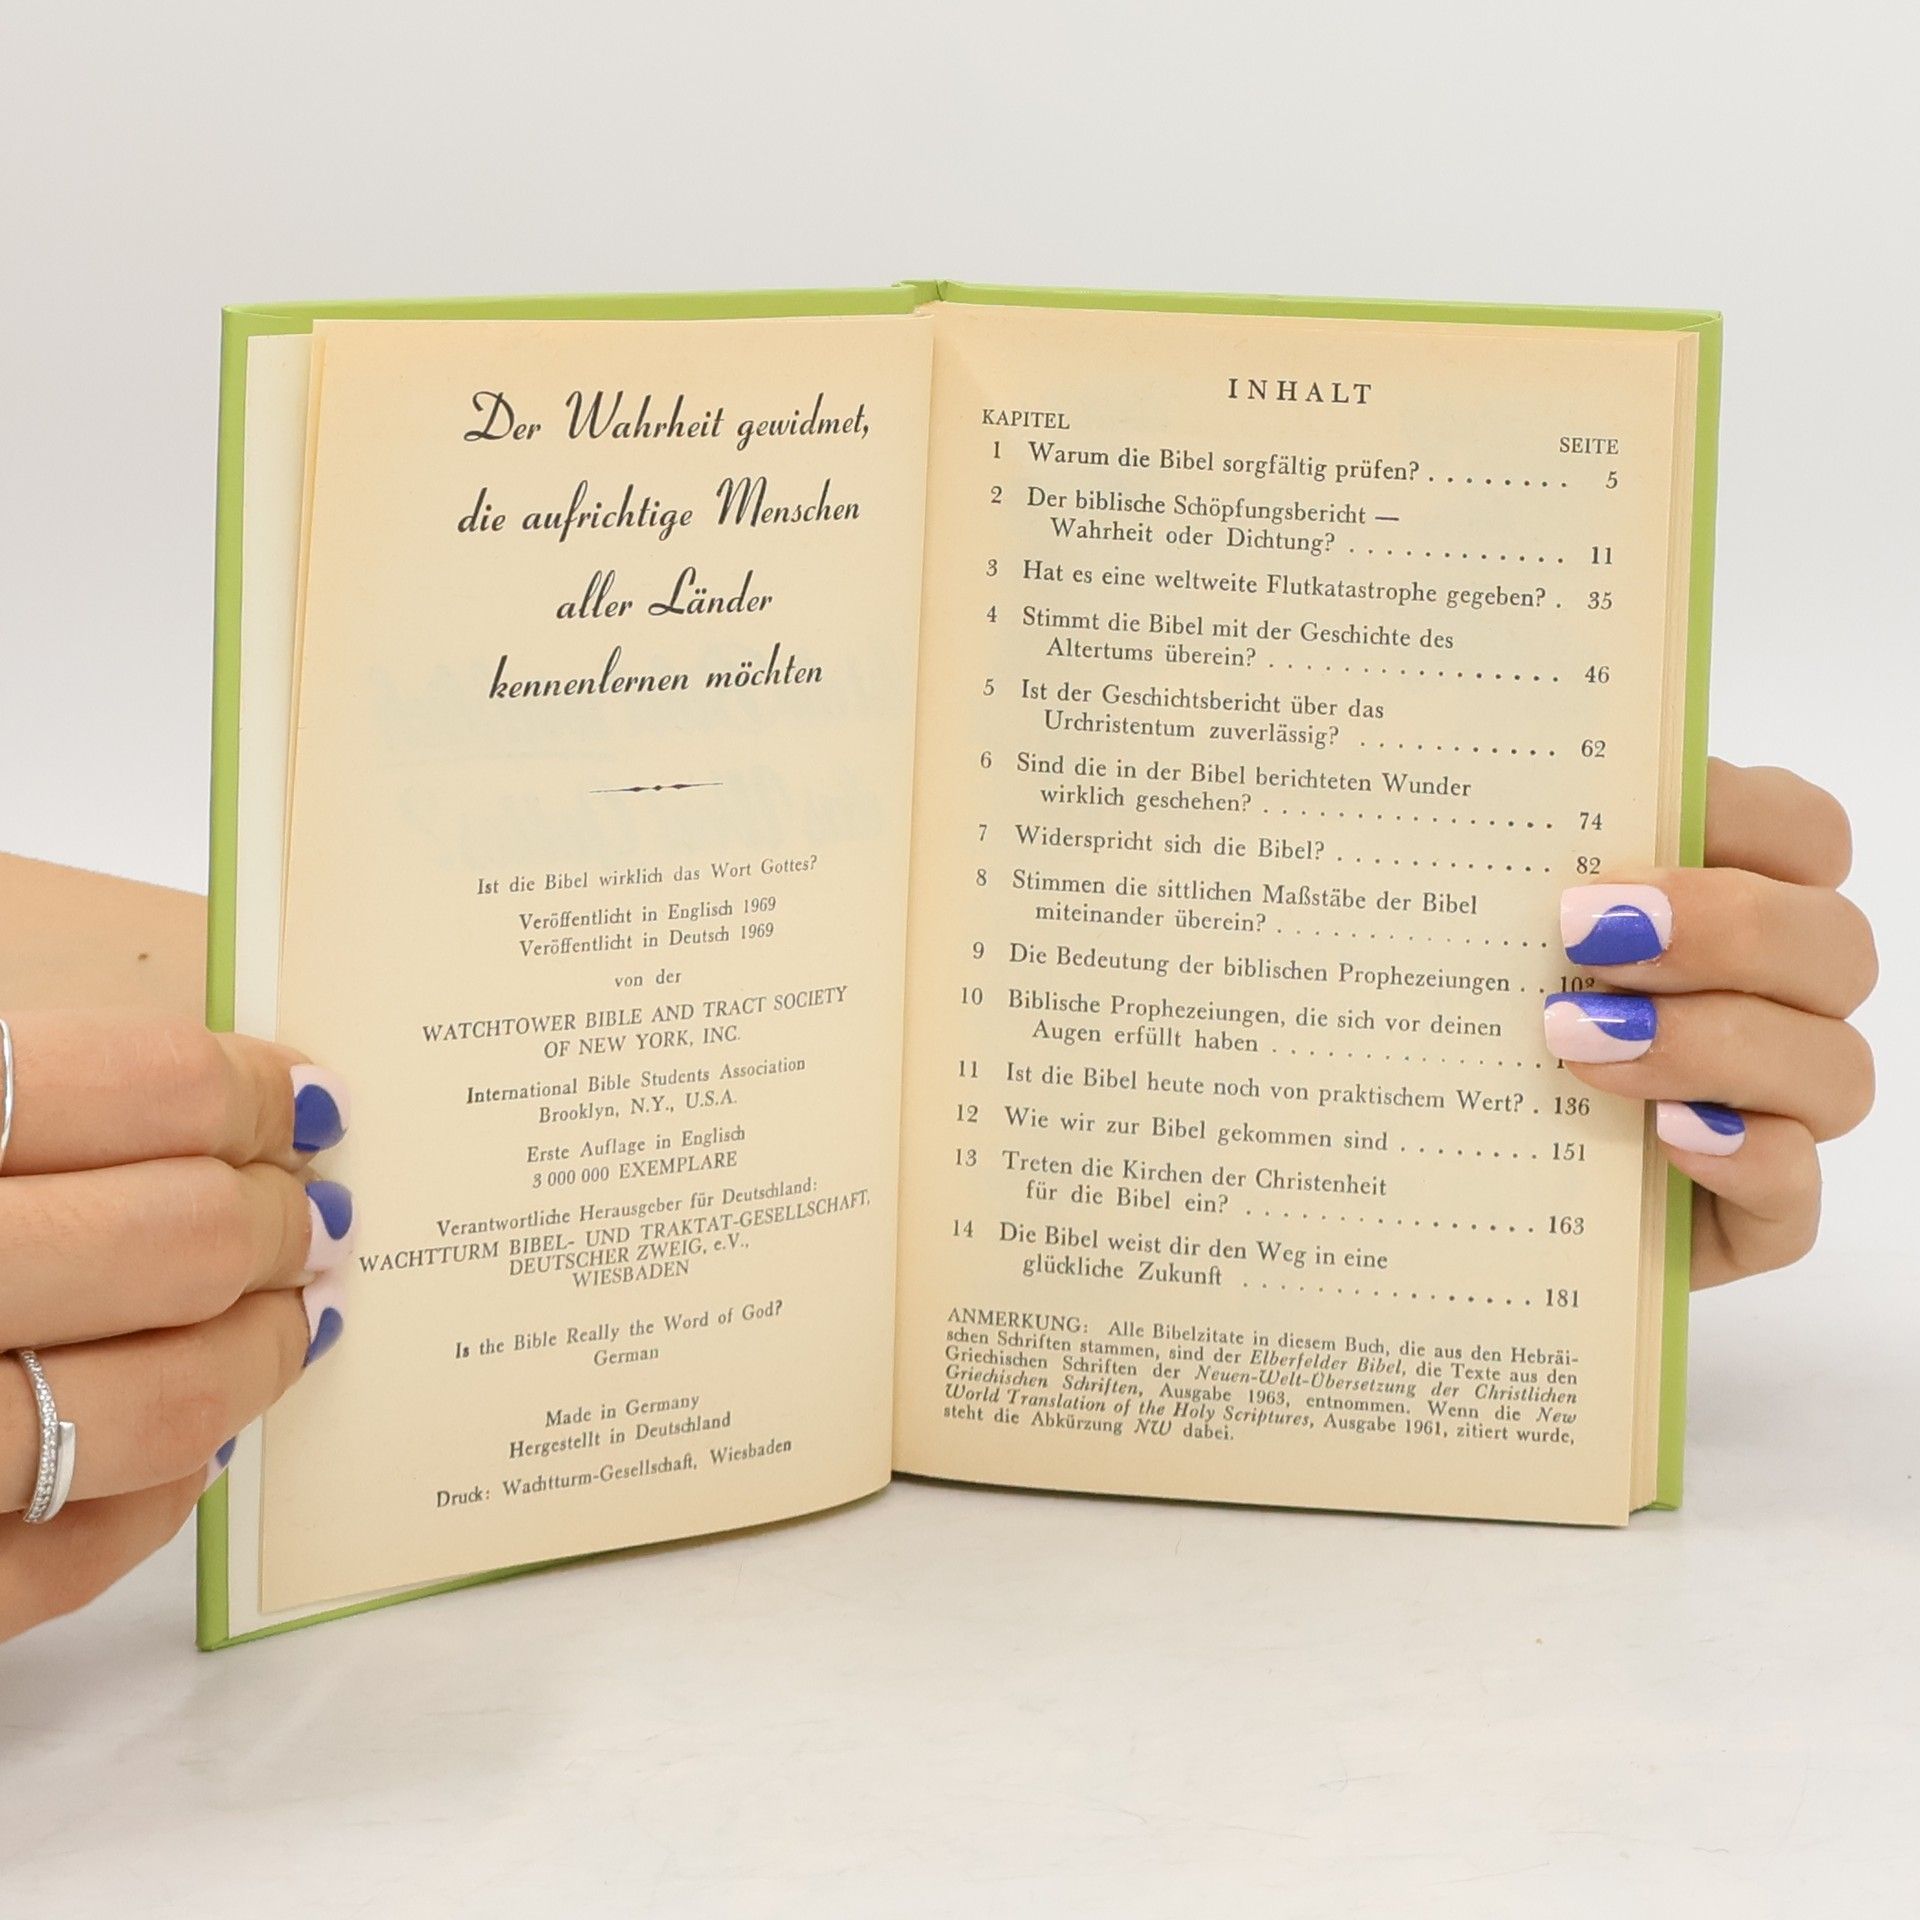 Der Wahrheit gewidmet,
die aufrichtige Menschen
aller Länder
kennenlernen möchten
Ist die Bibel wirklich das Wort Gottes?
Veröffentlicht in Englisch 1969
Veröffentlicht in Deutsch 1969
von der
WATCHTOWER BIBLE AND TRACT SOCIETY
OF NEW YORK, INC.
International Bible Students Association
Brooklyn, N.Y., U.S.A.
Erste Auflage in Englisch
3 000 000 EXEMPLARE
Verantwortliche Herausgeber für Deutschland:
WACHTTURM BIBEL- UND TRAKTAT-GESELLSCHAFT,
DEUTSCHER ZWEIG, e.V.,
WIESBADEN
Is the Bible Really the Word of God?
German
Made in Germany
Hergestellt in Deutschland
Druck: Wachtturm-Gesellschaft, Wiesbaden
INHALT
KAPITEL SEITE
1 Warum die Bibel sorgfältig prüfen? . . . . . . . . 5
2 Der biblische Schöpfungsbericht —
Wahrheit oder Dichtung? . . . . . . . . . . . . 11
3 Hat es eine weltweite Flutkatastrophe gegeben? . 35
4 Stimmt die Bibel mit der Geschichte des
Altertums überein? . . . . . . . . . . . . . . . 46
5 Ist der Geschichtsbericht über das
Urchristentum zuverlässig? . . . . . . . . . . . 62
6 Sind die in der Bibel berichteten Wunder
wirklich geschehen? . . . . . . . . . . . . . . . 74
7 Widerspricht sich die Bibel? . . . . . . . . . . . . 82
8 Stimmen die sittlichen Maßstäbe der Bibel
miteinander überein? . . . . . . . . . . . . . .
9 Die Bedeutung der biblischen Prophezeiungen . .
10 Biblische Prophezeiungen, die sich vor deinen
Augen erfüllt haben . . . . . . . . . . . . . .
11 Ist die Bibel heute noch von praktischem Wert? . 136
12 Wie wir zur Bibel gekommen sind . . . . . . . . 151
13 Treten die Kirchen der Christenheit
für die Bibel ein? . . . . . . . . . . . . . . . . 163
14 Die Bibel weist dir den Weg in eine
glückliche Zukunft . . . . . . . . . . . . . . . . 181
ANMERKUNG: Alle Bibelzitate in diesem Buch, die aus den Hebräi-
schen Schriften stammen, sind der Elberfelder Bibel, die Texte aus den
Griechischen Schriften der Neuen-Welt-Übersetzung der Christlichen
Griechischen Schriften, Ausgabe 1963, entnommen. Wenn die New
World Translation of the Holy Scriptures, Ausgabe 1961, zitiert wurde,
steht die Abkürzung NW dabei.